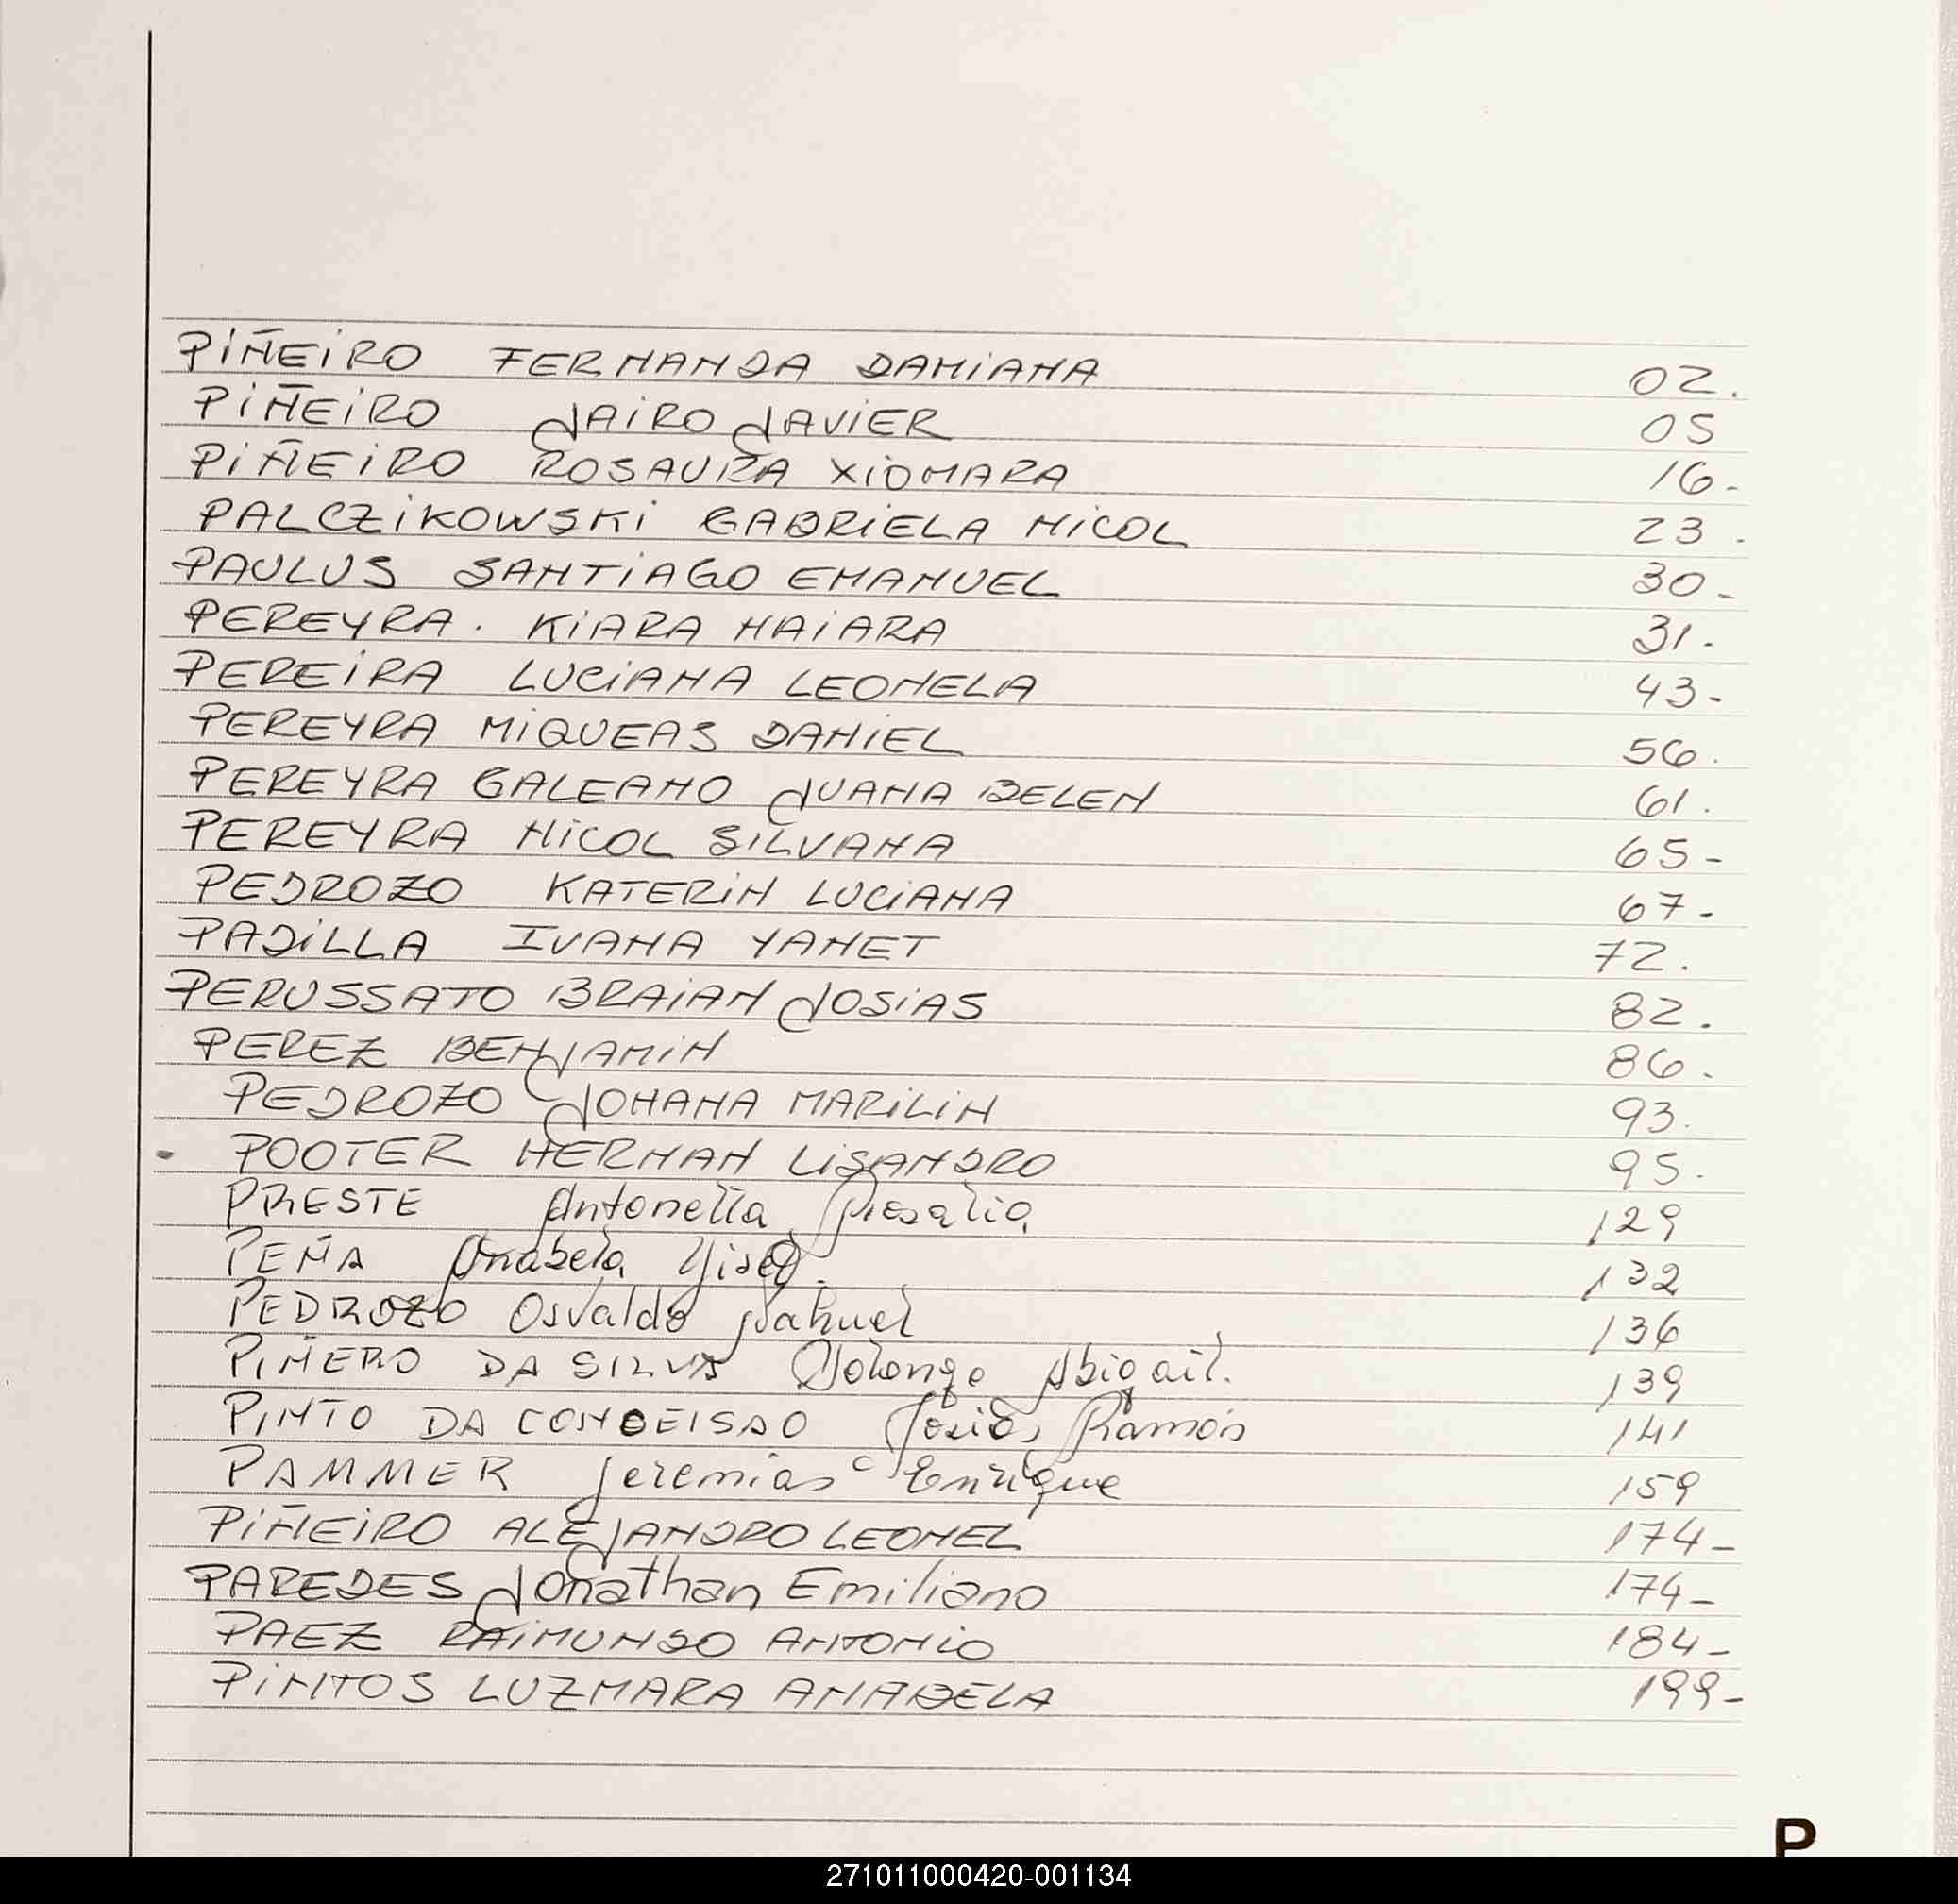 PIÑEIRO FERNANDA DAMIANA 02.
PIÑEIRO JAIRO JAVIER 05
PIÑEIRO ROSAURA XIOMARA 16-
PALCZIKOWSKI GABRIELA NICOL 23.
PAULUS SANTIAGO EMANUEL 30-
PEREYRA. KIARA NAIARA 31.
PEREIRA LUCIANA LEONELA 43-
PEREYRA MIQUEAS DANIEL 56.
PEREYRA GALEANO JUANA BELEN 61.
PEREYRA NICOL SILVANA 65-
PEDROZO KATERIN LUCIANA 67-
PADILLA IVANA YANET 72.
PERUSSATO BRAIAN JOSIAS 82.
PEREZ BENJAMIN 86.
PEDROZO JOHANA MARILIN 93.
POOTER HERNAN LISANDRO 95.
PRESTE Antonella Rosalia 129
PEÑA Anabela 132
PEDROZO Osvaldo Nahuel 136
PIÑERO DA SILVA Abigail. 139
PINTO DA CONCEISAO Josias Ramón 141
PAMMER Jeremias Enrique 159
PIÑEIRO ALEJANDRO LEONEL 174-
PAREDES Jonathan Emiliano 174-
PAEZ RAIMUNDO ANTONIO 184-
PINTOS LUZMARA ANABELA 199-
P
271011000420-001134